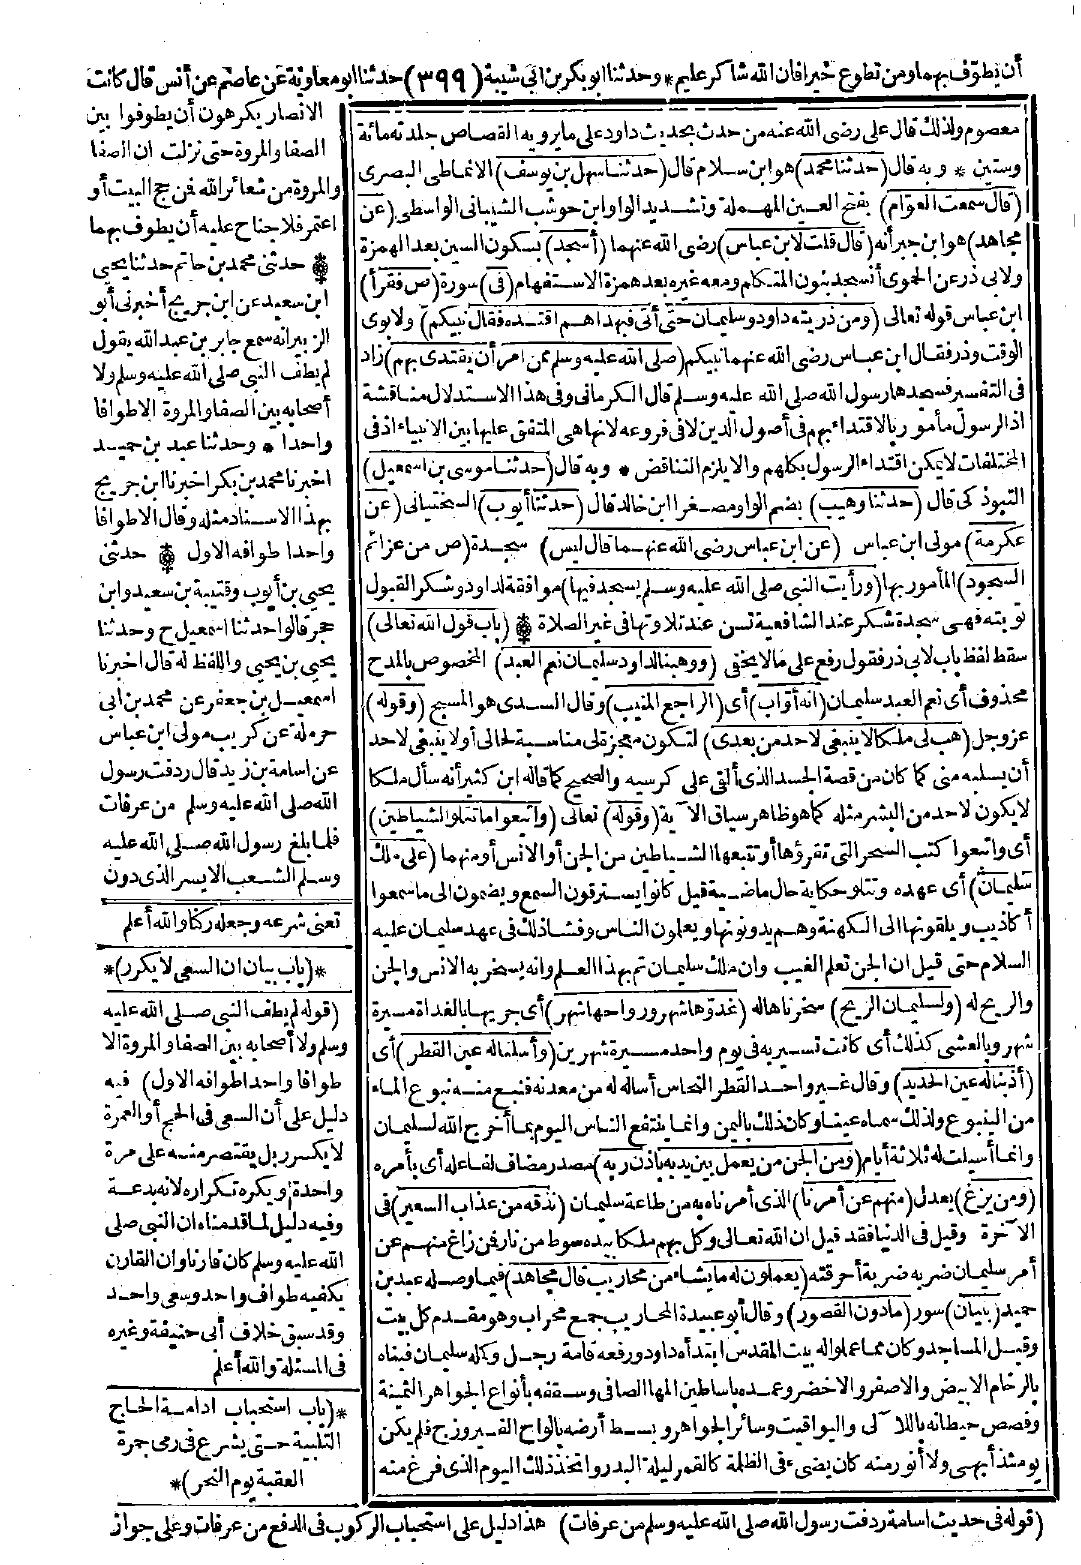 أن يطوّف بهما ومن تطوع خيرا فان الله شاكر عليم * وحدثنا أبو بكر بن أبى شيبة (٣٩٩) حدثنا أبو معاوية عن عاصم عن أنس قال كانت
معصوم ولذلك قال على رضى الله عنه من حدث بحديث داود على ما يرويه القصاص جلدته مائة
وستين * وبه قال (حدثنا محمد) هو ابن سلام قال (حدثنا سهل بن يوسف) الانماطى البصرى
(قال سمعت العوّام) بفتح العين المهملة وتشديد الواو ابن حوشب الشيبانى الواسطى (عن
مجاهد) هو ابن جبر أنه (قال قلت لابن عباس) رضى الله عنهما (أسجد) بسكون السين بعد الهمزة
ولابى ذر عن الحموى أنسجد بنون المتكلم ومعه غيره بعد همزة الاستفهام (فى) سورة (ص فقرأ)
ابن عباس قوله تعالى (ومن ذريته داود وسليمان حتى أتى فبهداهم اقتده فقال نبيكم) ولابوى
الوقت وذر فقال ابن عباس رضى الله عنهما نبيكم (صلى الله عليه وسلم ممن أمر أن يقتدى بهم) زاد
فى التفسير فسجدها رسول الله صلى الله عليه وسلم قال الكرمانى وفى هذا الاستدلال مناقشة
اذ الرسول مأمور بالاقتداء بهم فى أصول الدين لا فى فروعه لانها هى المتفق عليها بين الانبياء اذ فى
المختلفات لا يمكن اقتداء الرسول بكلهم والا يلزم التناقض * وبه قال (حدثنا موسى بن اسمعيل)
التبوذكى قال (حدثنا وهيب) بضم الواو مصغرا ابن خالد قال (حدثنا أيوب) السختيانى (عن
عكرمة) مولى ابن عباس (عن ابن عباس رضى الله عنهما قال ليس) سجدة (ص من عزائم
السجود) المأمور بها (ورأيت النبى صلى الله عليه وسلم يسجد فيها) موافقة لداود وشكر القبول
توبته فهى سجدة شكر عند الشافعية تسن عند تلاوتها فى غير الصلاة (باب قول الله تعالى)
سقط لفظ باب لابى ذر فقول رفع على ما لا يخفى (ووهبنا لداود سليمان نعم العبد) المخصوص بالمدح
محذوف أى نعم العبد سليمان (انه أوّاب) أى (الراجع المنيب) وقال السدى هو المسبح (وقوله)
عز وجل (هب لى ملكا لا ينبغى لاحد من بعدى) لتكون معجزة لى مناسبة لحالى أو لا ينبغى لاحد
أن يسلبه منى كما كان من قصة الجسد الذى ألقى على كرسيه والصحيح كما قاله ابن كثير أنه سأل ملكا
لا يكون لاحد من البشر مثله كما هو ظاهر سياق الآية (وقوله) تعالى (واتبعوا ما تتلو الشياطين)
أى واتبعوا كتب السحر التى تقرؤها أو تتبعها الشياطين من الجن أو الانس أو منهما (على ملك
سليمان) أى عهده وتتلو حكاية حال ماضية قيل كانوا يسترقون السمع ويضمون الى ما سمعوا
أكاذيب ويلقونها الى الكهنة وهم يدونونها ويعلمون الناس وفشا ذلك فى عهد سليمان عليه
السلام حتى قيل ان الجن تعلم الغيب وان ملك سليمان تم بهذا العلم وانه يسخر به الانس والجن
والريح له (ولسليمان الريح) سخرناها له (غدوّها شهر ورواحها شهر) أى جريها بالغداة مسيرة
شهر وبالعشى كذلك أى كانت تسير به فى يوم واحد مسيرة شهرين (وأسلنا له عين القطر) أى
(أذبنا له عين الحديد) وقال غير واحد القطر النحاس أساله له من معدنه فنبع منه نبوع الماء
من الينبوع ولذلك سماه عينا وكان ذلك باليمن وانما ينتفع الناس اليوم بما أخرج الله لسليمان
وانما أسيلت له ثلاثة أيام (ومن الجن من يعمل بين يديه باذن ربه) مصدر مضاف لفاعله أى بأمره
(ومن يزغ) يعدل (منهم عن أمرنا) الذى أمرناه به من طاعة سليمان (نذقه من عذاب السعير) فى
الآخرة وقيل فى الدنيا فقد قيل ان الله تعالى وكل بهم ملكا بيده سوط من نار فمن زاغ منهم عن
أمر سليمان ضربه ضربة أحرقته (يعملون له ما يشاء من محاريب قال مجاهد) فيما وصله عبد بن
حميد (بنيان) سور (مادون القصور) وقال أبو عبيدة المحاريب جمع محراب وهو مقدم كل بيت
وقيل المساجد وكان مما عملوا له بيت المقدس ابتدأه داود ورفعه قامة رجل وكمله سليمان فبناه
بالرخام الابيض والاصفر والاخضر وعمده باساطين المها الصافى وسقفه بأنواع الجواهر الثمينة
وفصص حيطانه باللآلى واليواقيت وسائر الجواهر وبسط أرضه بألواح الفيروزج فلم يكن
يومئذ أبهى ولا أنور منه كان يضىء فى الظلمة كالقمر ليلة البدر واتخذ ذلك اليوم الذى فرغ منه
الانصار يكرهون أن يطوفوا بين
الصفا والمروة حتى نزلت ان الصفا
والمروة من شعائر الله فمن حج البيت أو
اعتمر فلا جناح عليه أن يطوف بهما
حدثنى محمد بن حاتم حدثنا يحيى
ابن سعيد عن ابن جريج أخبرنى أبو
الزبير انه سمع جابر بن عبد الله يقول
لم يطف النبى صلى الله عليه وسلم ولا
أصحابه بين الصفا والمروة الا طوافا
واحدا * وحدثنا عبد بن حميد
اخبرنا محمد بن بكر اخبرنا ابن جريج
بهذا الاسناد مثله وقال الا طوافا
واحدا طوافه الاول حدثنى
يحيى بن أيوب وقتيبة بن سعيد وابن
حجر قالوا حدثنا اسمعيل ح وحدثنا
يحيى بن يحيى واللفظ له قال اخبرنا
اسمعيل بن جعفر عن محمد بن ابى
حرملة عن كريب مولى ابن عباس
عن اسامة بن زيد قال ردفت رسول
الله صلى الله عليه وسلم من عرفات
فلما بلغ رسول الله صلى الله عليه
وسلم الشعب الايسر الذى دون
تعنى شرعه وجعله ركنا والله أعلم
*(باب بيان ان السعى لا يكرر)*
(قوله لم يطف النبى صلى الله عليه
وسلم ولا أصحابه بين الصفا والمروة الا
طوافا واحدا طوافه الاول) فيه
دليل على أن السعى فى الحج أو العمرة
لا يكرر بل يقتصر منه على مرة
واحدة ويكره تكراره لانه بدعة
وفيه دليل لما قدمناه ان النبى صلى
الله عليه وسلم كان قارنا وان القارن
يكفيه طواف واحد وسعى واحد
وقد سبق خلاف أبى حنيفة وغيره
فى المسئلة والله أعلم
*(باب استحباب ادامة الحاج
التلبية حتى يشرع فى رمى جمرة
العقبة يوم النحر)*
(قوله فى حديث اسامة ردفت رسول الله صلى الله عليه وسلم من عرفات) هذا دليل على استحباب الركوب فى الدفع من عرفات وعلى جواز